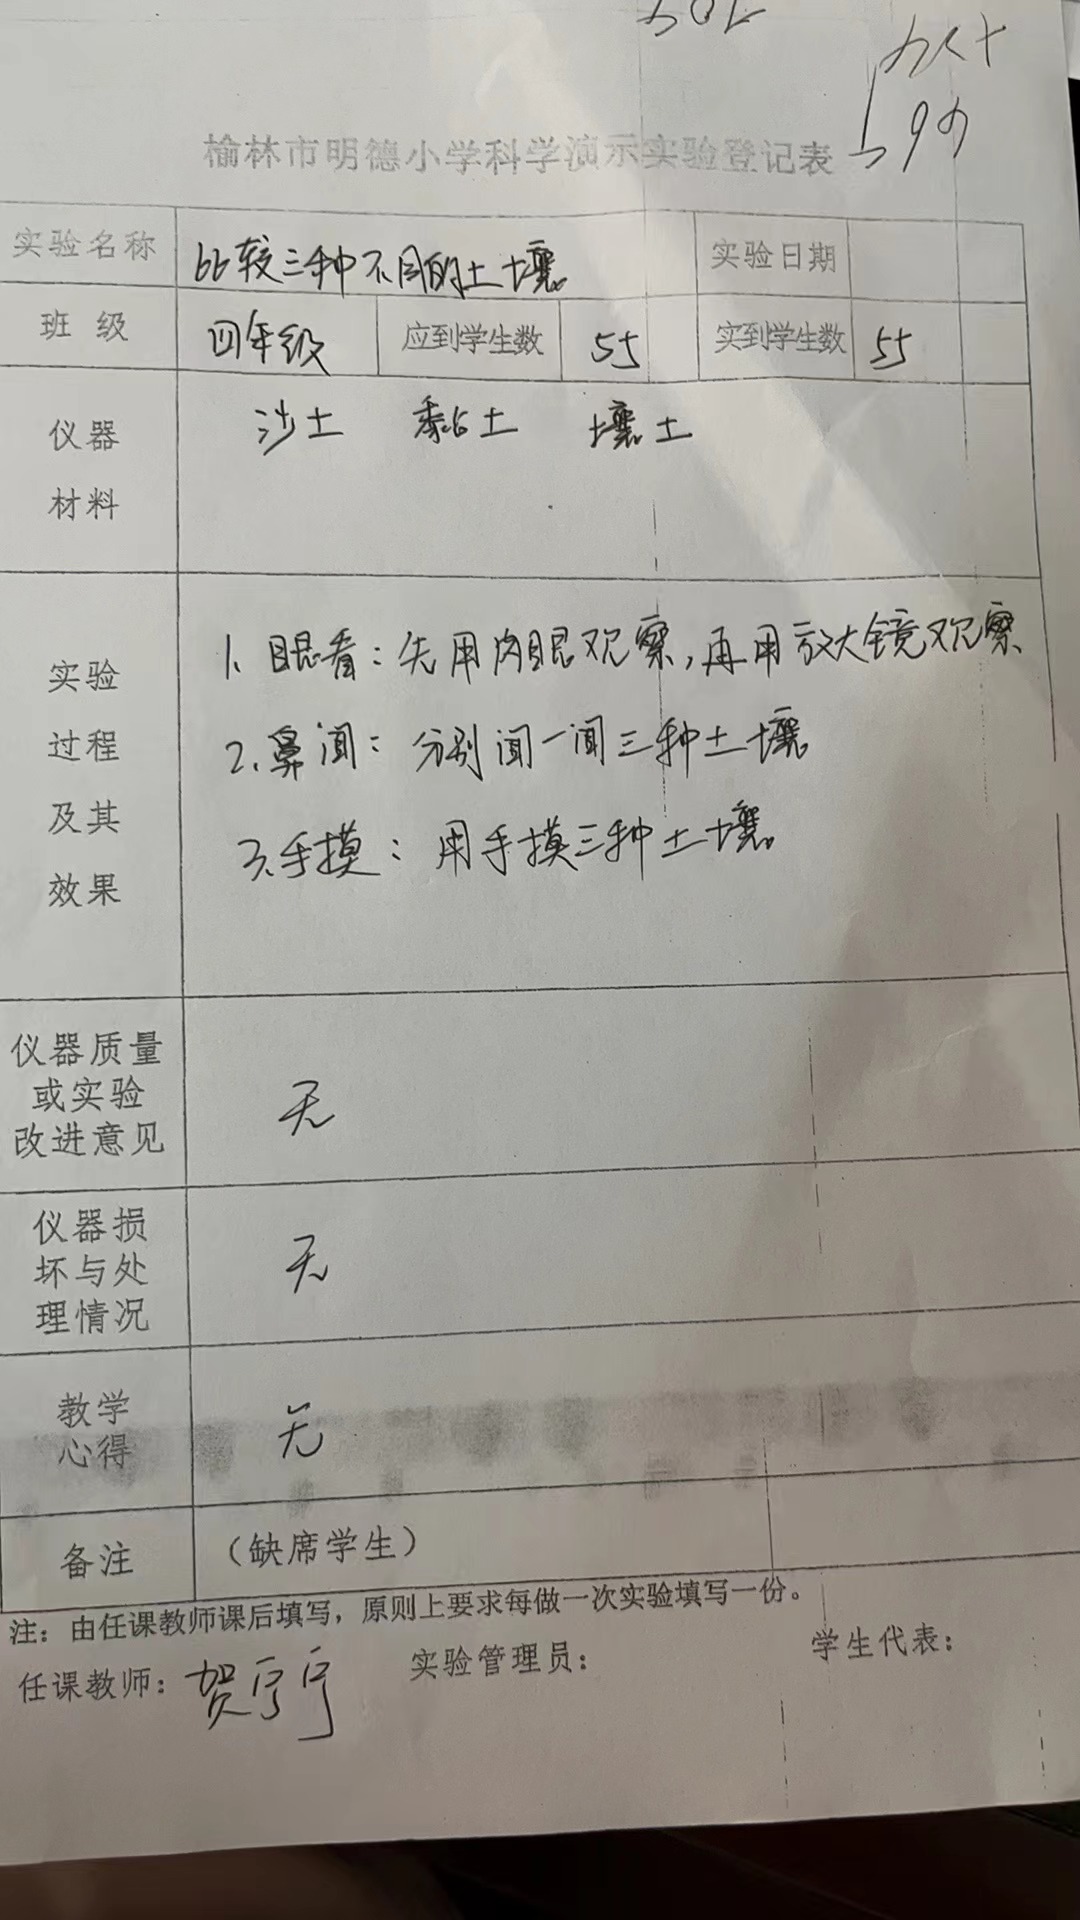 榆林市明德小学科学演示实验登记表
实验名称 比较三种不同的土壤 实验日期
班级 四年级 应到学生数 55 实到学生数 55
仪器 沙土 黏土 壤土
材料
实验 1、眼看：先用肉眼观察，再用放大镜观察
过程 2、鼻闻：分别闻一闻三种土壤
及其 3、手摸：用手摸三种土壤
效果
仪器质量
或实验 无
改进意见
仪器损
坏与处 无
理情况
教学 无
心得
备注 （缺席学生）
注：由任课教师课后填写，原则上要求每做一次实验填写一份。
任课教师：贺宁宁 实验管理员： 学生代表：